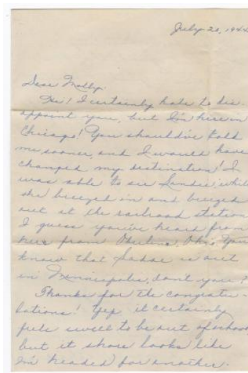 July 20, 194
Dear Molly,
Yes! I certainly hate to dis-
appoint you, but I'm here in
Chicago! You should've told
me sooner, and I would have
changed my destination! I
was able to see
she breezed in and breezed
out at the railroad station.
I guess you've heard from
her from You
know that is out
in Minneapolis, don't you?
Thanks for the congratu-
lations! Yep it certainly
feels swell to be out of school
but it shore looks like
I'm headed for another.